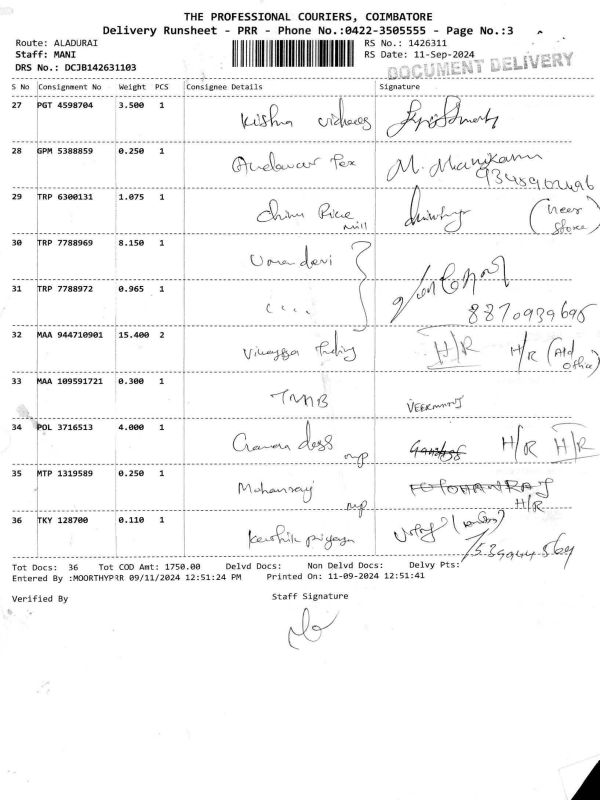 THE PROFESSIONAL COURIERS, COIMBATORE
Delivery Runsheet - PRR - Phone No.:0422-3505555 - Page No.:3
Route: ALADURAI RS No.: 1426311
Staff: MANI RS Date: 11-Sep-2024
DRS No.: DCJB142631103
DOCUMENT DELIVERY
S No Consignment No Weight PCS Consignee Details Signature
27 PGT 4598704 3.500 1
Krishna
28 GPM 5388859 0.250 1
Tex M. Manikam
29 TRP 6300131 1.075 1
Rice mill (Near Store)
30 TRP 7788969 8.150 1
Uma devi
31 TRP 7788972 0.965 1
8870939695
32 MAA 944710901 15.400 2
Vinayaga Trading H/R H/R (Old office)
33 MAA 109591721 0.300 1
TMB VEERAMANI
34 POL 3716513 4.000 1
mp H/R H/R
35 MTP 1319589 0.250 1
Mohanraj mp H/R
36 TKY 128700 0.110 1
Tot Docs: 36 Tot COD Amt: 1750.00 Delvd Docs: Non Delvd Docs: Delvy Pts:
Entered By :MOORTHYPRR 09/11/2024 12:51:24 PM Printed On: 11-09-2024 12:51:41
Verified By Staff Signature